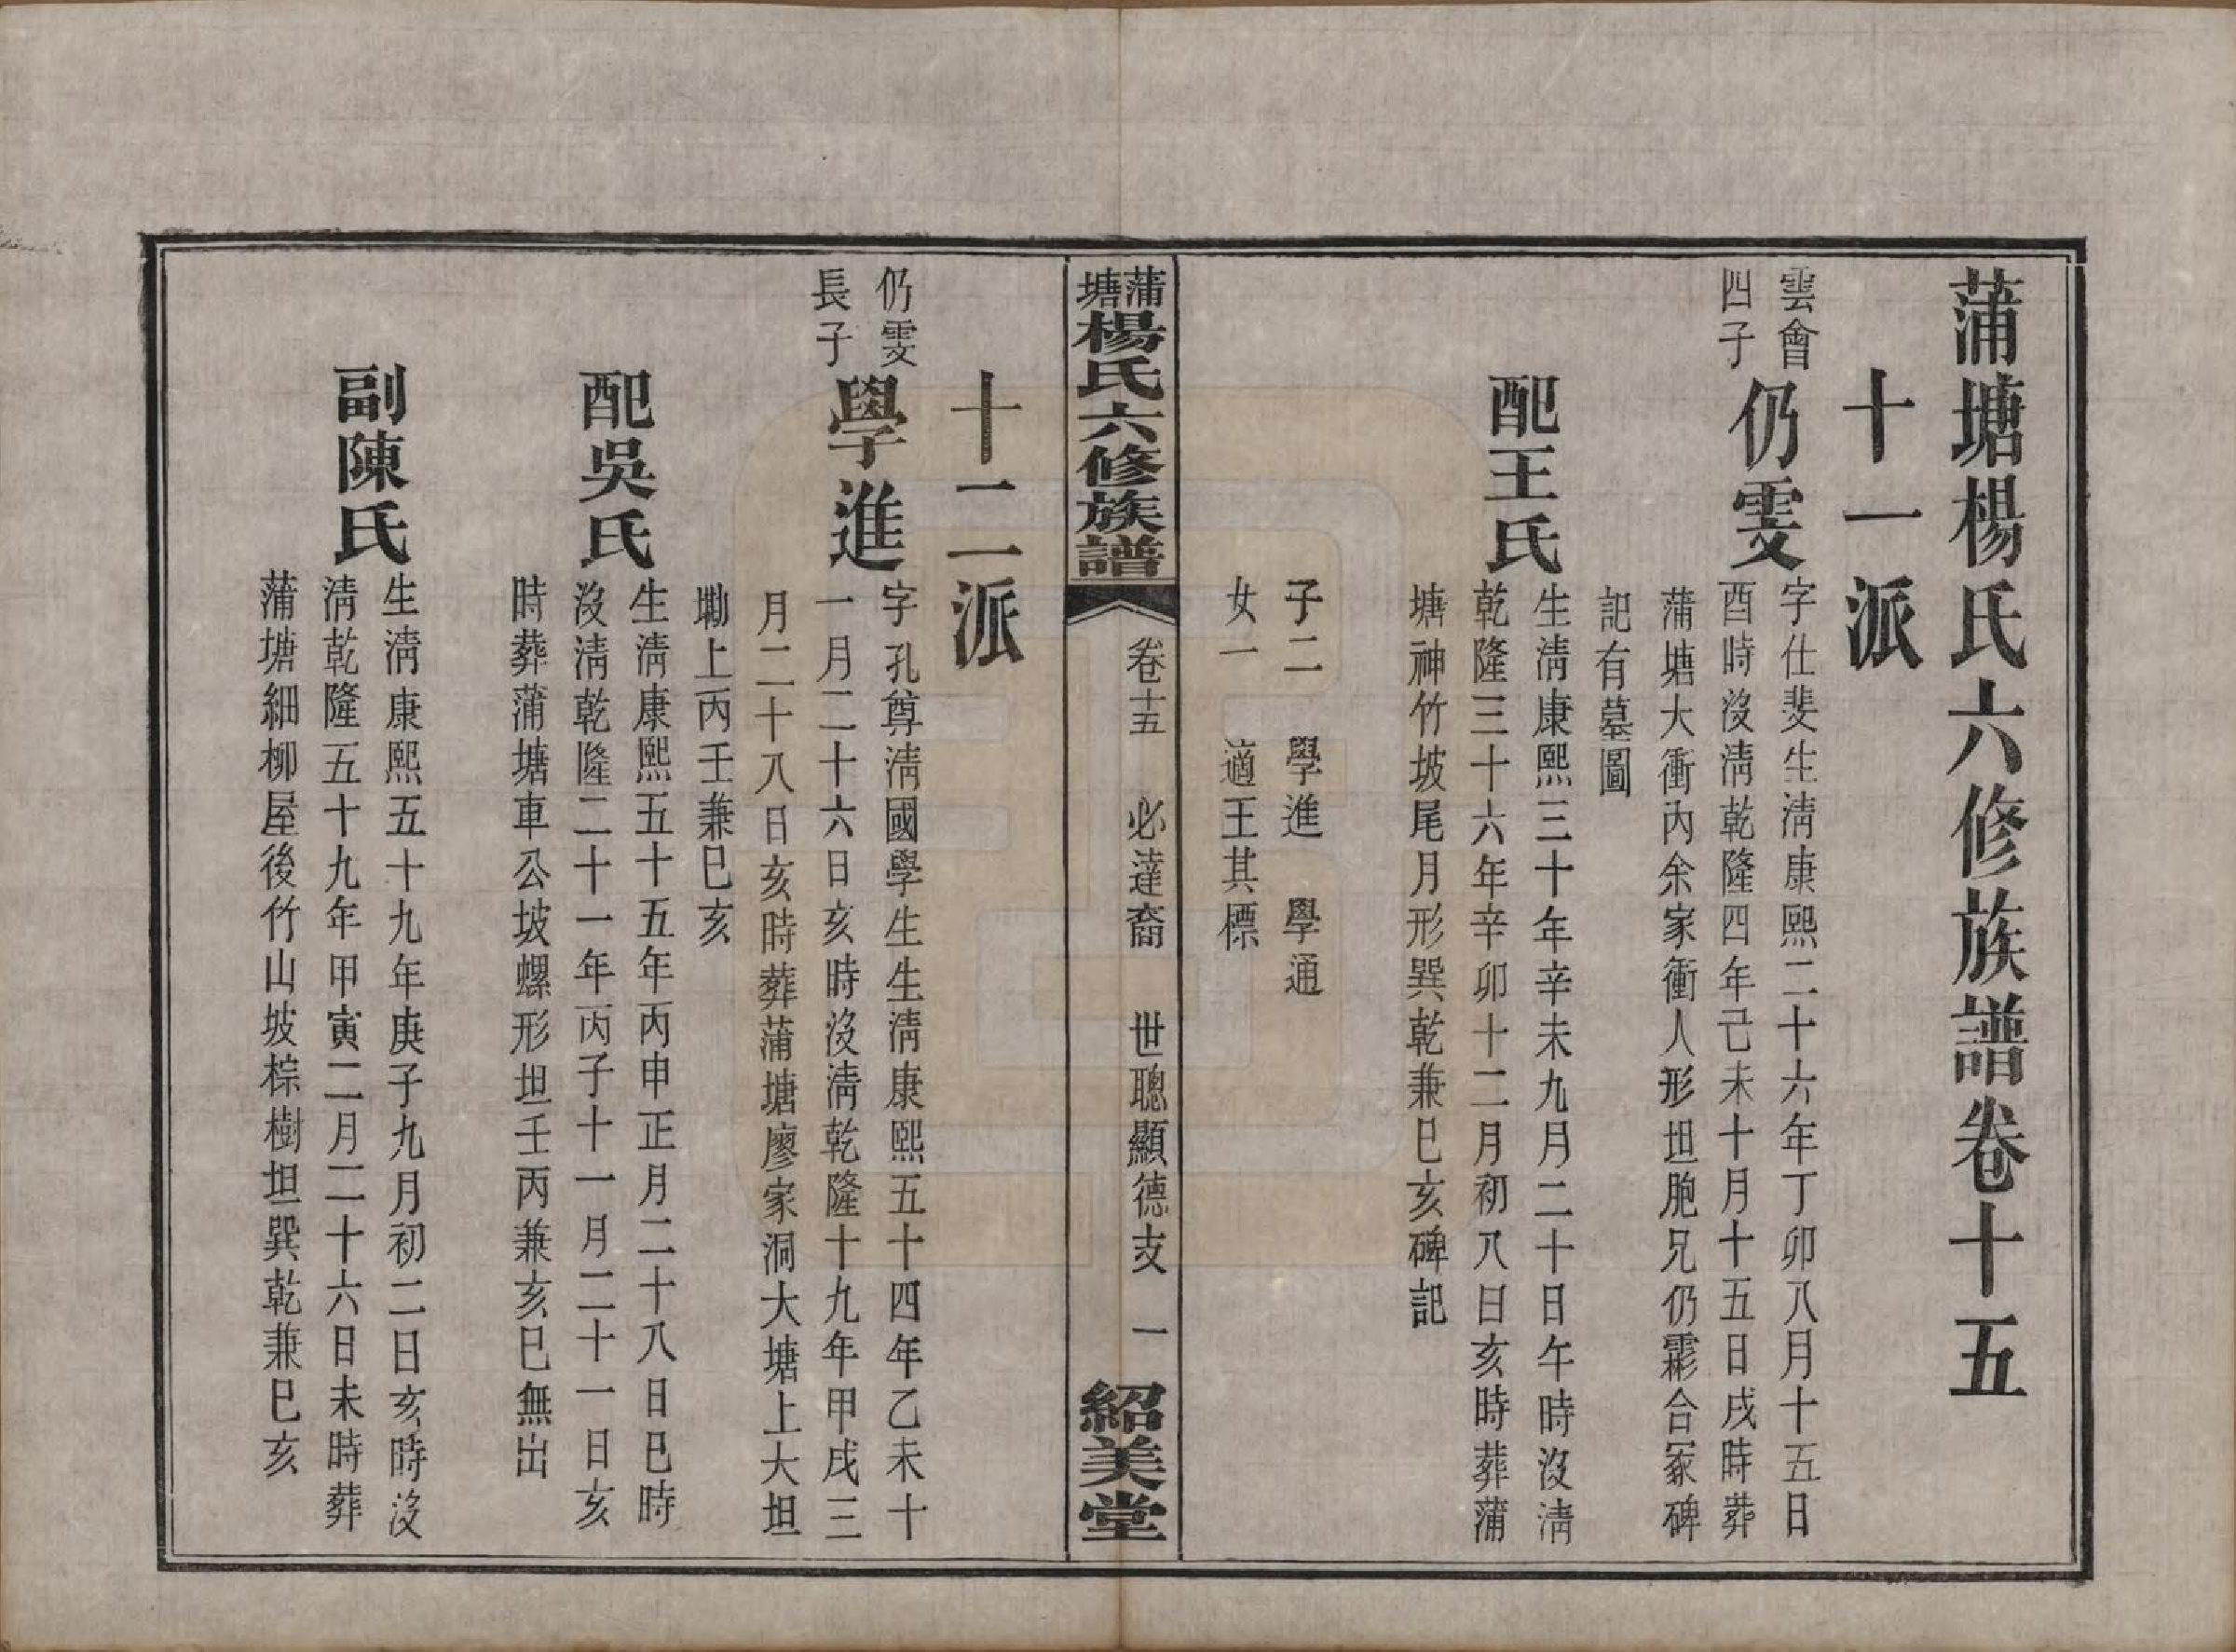 蒲塘楊氏六修族譜卷十五
十一派
雲會
四子
仍雯
字仕斐生淸康熙二十六年丁卯八月十五日
酉時沒淸乾隆四年己未十月十五日戌時葬
蒲塘大衝內余家衝人形坦胞兄仍霦合冢碑
記有墓圖
配王氏
生淸康熙三十年辛未九月二十日午時沒淸
乾隆三十六年辛卯十二月初八日亥時葬蒲
塘神竹坡尾月形巽乾兼巳亥碑記
子二 學進 學通
女一 適王其標
蒲塘楊氏六修族譜 卷十五 必達裔 世聰顯德支 一 紹美堂
十二派
仍雯
長子
學進
字孔尊淸國學生生淸康熙五十四年乙未十
一月二十六日亥時沒淸乾隆十九年甲戌三
月二十八日亥時葬蒲塘廖家洞大塘上大坦
墈上丙壬兼巳亥
配吳氏
生淸康熙五十五年丙申正月二十八日巳時
沒淸乾隆二十一年丙子十一月二十一日亥
時葬蒲塘車公坡螺形坦壬丙兼亥巳無出
副陳氏
生淸康熙五十九年庚子九月初二日亥時沒
淸乾隆五十九年甲寅二月二十六日未時葬
蒲塘細柳屋後竹山坡棕樹坦巽乾兼巳亥